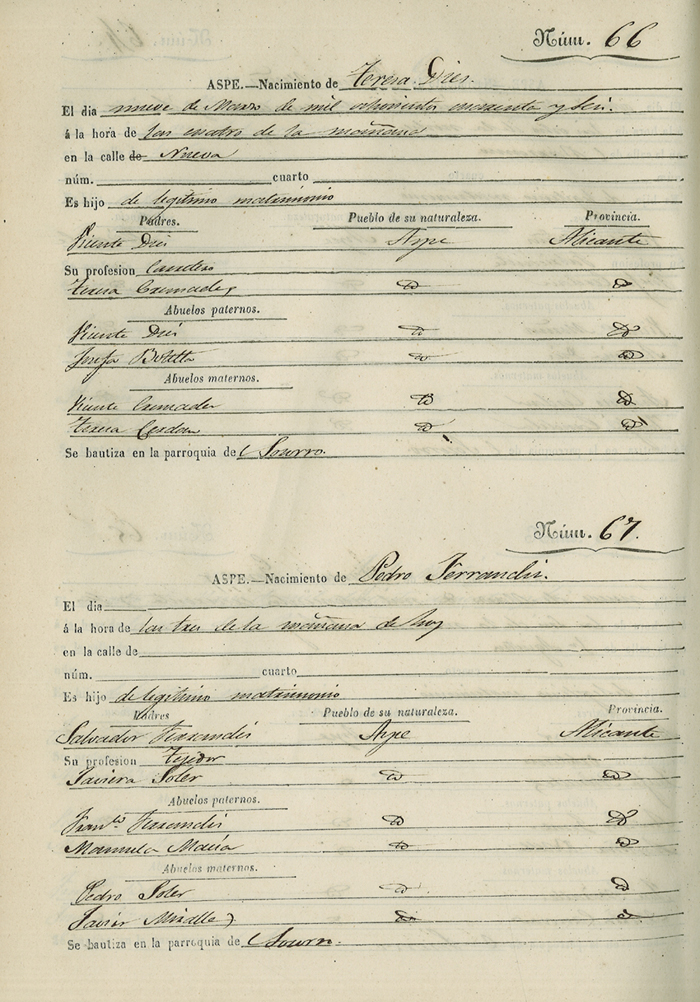 Núm. 66
ASPE.—Nacimiento de Teresa Dies.
El dia nueve de Marzo de mil ochocientos cuarenta y seis.
á la hora de las cuatro de la mañana
en la calle de Nueva
núm. cuarto
Es hijo de legitimo matrimonio
Padres. Pueblo de su naturaleza. Provincia.
Vicente Dies Aspe Alicante
Su profesion
Teresa Cremades id id
Abuelos paternos.
Vicente Dies id id
Josefa Botella id id
Abuelos maternos.
Vicente Cremades id id
Teresa Cerdan id id
Se bautiza en la parroquia de Socorro.
Núm. 67.
ASPE.—Nacimiento de Pedro Ferrandis.
El dia
á la hora de las tres de la mañana de hoy
en la calle de
núm. cuarto
Es hijo de legitimo matrimonio
Padres Pueblo de su naturaleza. Provincia.
Salvador Ferrandis Aspe Alicante
Su profesion Tejedor
Javiera Soler id id
Abuelos paternos.
Franco. Ferrandis id id
Manuela Maria id id
Abuelos maternos.
Pedro Soler id id
Miralles id id
Se bautiza en la parroquia de Socorro.